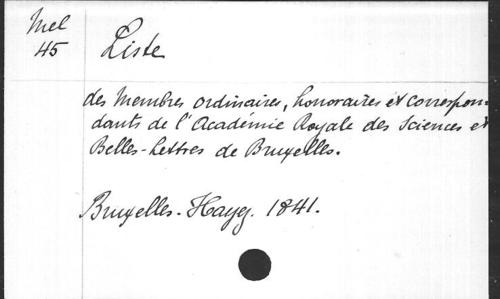 Mel
45
Liste
des Membres ordinaires, honoraires et correspon-
dants de l'Académie Royale des Sciences et
Belles-Lettres de Bruxelles.
Bruxelles-Hayez. 1841.